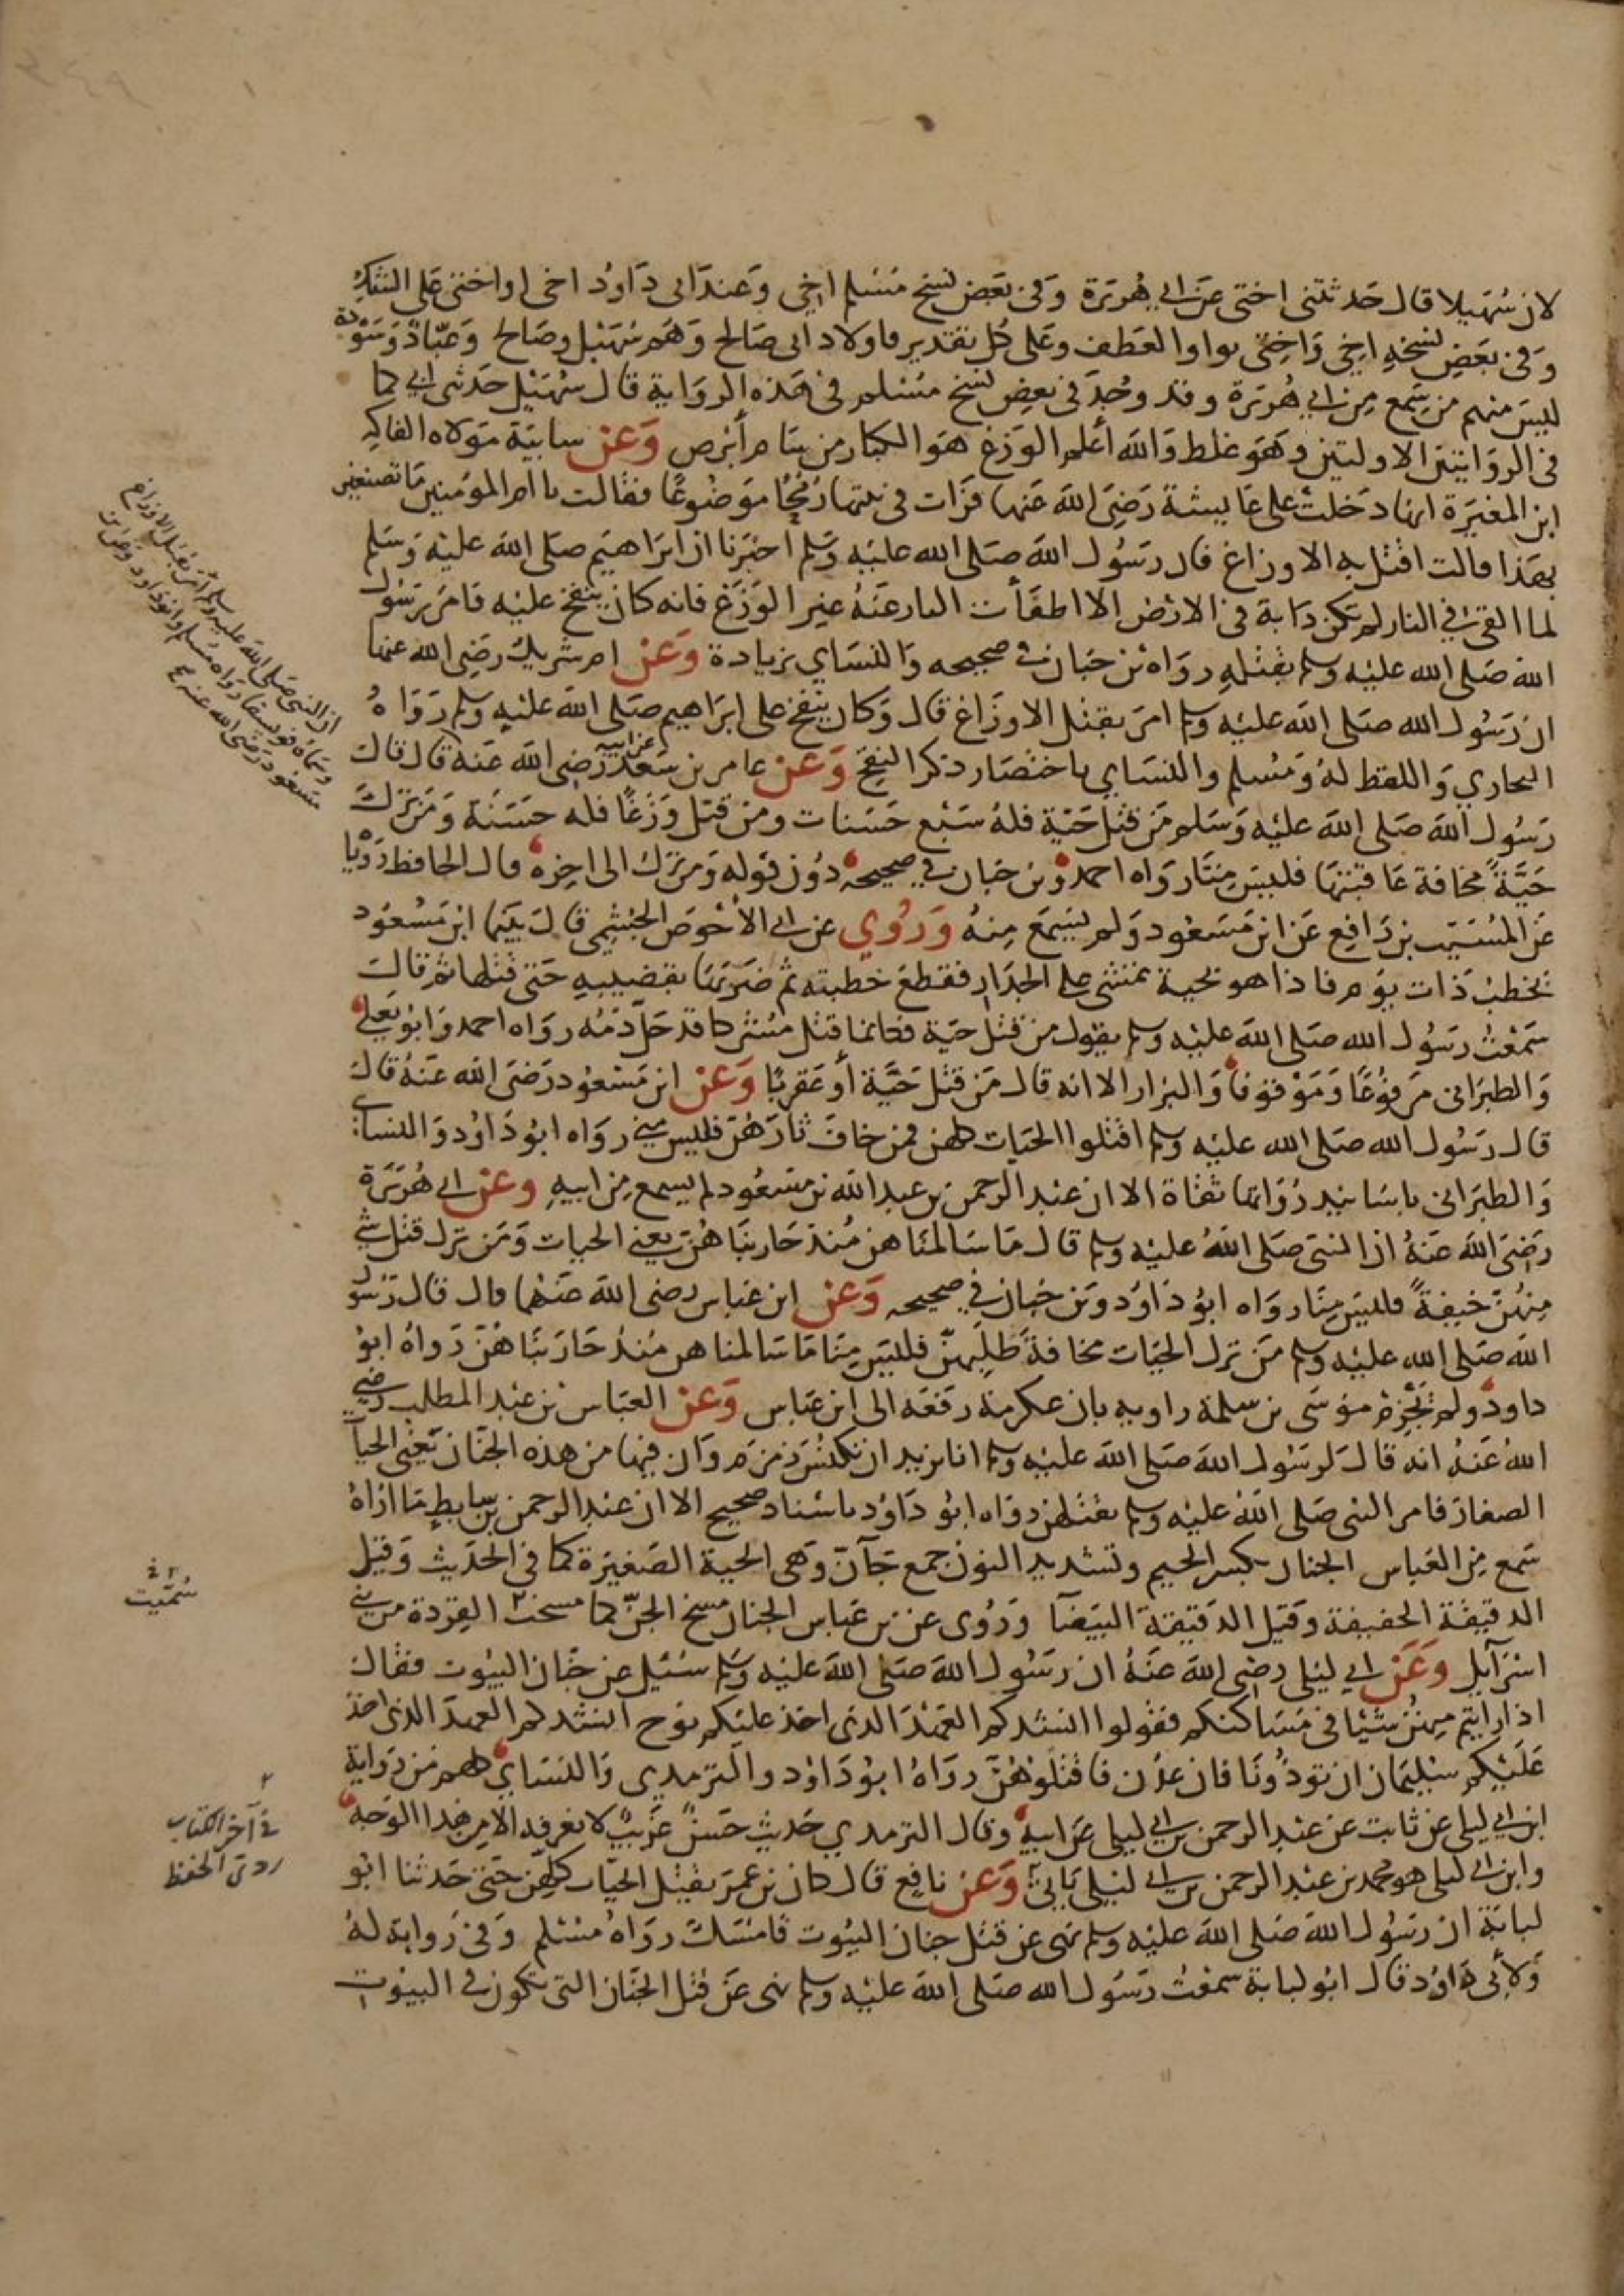 لان سُهيلا قال حدثتنى اختى عن ابى هريرة وفى بعض نسخ مسلم اخى وعند ابى داود اخى او اختى على الشك
وفى بعض نسخه اخى واختى بواو العطف وعلى كل تقدير فاولاد ابى صالح وهم سهيل وصالح وعبّاد وسودة
ليس منهم من سمع من ابى هريرة وقد وُجد فى بعض نسخ مسلم فى هذه الرواية قال سهيل حدثنى ابى كما
فى الروايتين الاولتين وهو غلط والله أعلم الوَزغ هو الكبار من سام أبرص وَعَن سايبة مولاه الفاكِه
ابن المغيرة انها دخلت على عايشة رضى الله عنها فرات فى بيتها رُمحًا موضوعًا فقالت يا ام المؤمنين ما تصنعين
بهذا قالت اقتل به الاوزاغ فان رسُول الله صلى الله عليه وسلم اخبرنا ان ابراهيم صلى الله عليه وسلم
لما القى فى النار لم تكن دابة فى الارض الا اطفأت النار عنه غير الوزغ فانه كان ينفخ عليه فامر رسول
الله صلى الله عليه وسلم بقتله رواه بن حبان فى صحيحه والنساى بزيادة وَعَن ام شريك رضى الله عنها
ان رسُول الله صلى الله عليه وسلم امر بقتل الاوزاغ قال وكان ينفخ على ابراهيم صلى الله عليه وسلم رواهُ
البخاري واللفظ له ومُسلم والنساي باختصار ذكر النفخ وَعَن عامر بن سعد عن ابيه رضى الله عنه قال قال
رسُول الله صلى الله عليه وسلم من قتل حيّة فله سبع حسنات ومن قتل وزغًا فله حسنة ومن ترك
حيّةً مخافة عاقبتها فليس منّا رواه احمد وبن حبان فى صحيحه دُون قوله ومن ترك الى اخره قال الحافظ روّيا
عن المُسيّب بن رافع عن ابن مسعود ولم يسمع منهُ وَرُوي عن ابى الأحوص الجشمى قال بينما ابن مسعود
يخطب ذات يوم فاذا هو بحية تمشى على الجدار فقطع خطبته ثم ضربها بقضيبه حتى قتلها ثم قال
سمعتُ رسُول الله صلى الله عليه وسلم يقول من قتل حية فكانما قتل مشركا قد حلّ دَمُه رواه احمد وابو يعلى
والطبرانى مرفوعًا وموقوفا والبزار الا انه قال من قتل حيّة أو عقربًا وَعَن ابن مسعود رضى الله عنه قال
قال رسُول الله صلى الله عليه وسلم اقتلوا الحيات كلهن فمن خاف ثارهُن فليس منى رواه ابو داود والنساى
والطبرانى باسانيد رُواتها ثقاة الا ان عبد الرحمن بن عبد الله بن مسعُود لم يسمع من ابيه وعن ابى هُريرة
رضى الله عنهُ ان النبى صلى اللهُ عليه وسلم قال ما سالمناهن مُنذ حاربناهُن يعنى الحيات ومن ترك قتل شى
منهُن خيفةً فليس منّا رواه ابو داود وبن حبان فى صحيحه وَعَن ابن عباس رضى الله عنهُما قال قال رسُول
الله صلى الله عليه وسلم من ترك الحيات مخافة طلبهن فليس منّا ما سالمناهن مُنذُ حاربناهُن رواهُ ابو
داود ولم يجزم موسى بن سلمة راويه بان عكرمة رفعه الى ابن عباس وَعَن العباس بن عبد المطلب رضى
اللهُ عنهُ انه قال لرسُول الله صلى الله عليه وسلم انا نريد ان نكنس زمزم وان فيها من هذه الجنان يعنى الحيا
الصغار فامر النبى صلى الله عليه وسلم بقتلهن رواه ابو داود باسناد صحيح الا ان عبد الرحمن بن سابط ما اراهُ
سمع من العباس الجنان بكسر الجيم وتشديد النون جمع جآنّ وهى الحية الصغيرة كما فى الحديث وقيل
الدقيقة الخفيفة وقيل الدقيقة البيضا ورُوى عن بن عباس الجنان مسخ الجنّ كما مسخت القردة من بنى
اسرآيل وعن ابى ليلى رضى الله عنهُ ان رسُول الله صلى الله عليه وسلم سُئيل عن جنان البيُوت فقال
اذا رايتم منهُن شيًا فى مساكنكم فقولوا انشدكم العهد الذى اخذ عليكم نوح انشدكم العهد الذى اخذ
عَليكم سُليمان ان تؤذونا فان عُدن فاقتلوهُن رواهُ ابو داود والترمدي والنساي كلهم من رواية
ابن ابى ليلى عن ثابت عن عبد الرحمن بن ابى ليلى عن ابيه وقال الترمدي حديث حسنٌ غريبٌ لا نعرفه الا من هذا الوجه
وابن ابى ليلى هو محمد بن عبد الرحمن بن ابى ليلى يأتى وَعَن نافع قال كان بن عمر يقتل الحيات كلهن حتى حدثنا ابو
لبابة ان رسُول الله صلى الله عليه وسلم نهى عن قتل جنان البيُوت فامسك رواهُ مسلم وفى رواية لهُ
ولأبى داود قال ابو لبابة سمعتُ رسُول الله صلى الله عليه وسلم نهى عن قتل الجنان التى تكون فى البيُوت
ان النبى صلى الله عليه وسلم أمر بقتل الاوزاغ
وسماه فويسقا رواه مسلم وابو داود وعن ابن
مسعود رضى الله عنه
سُميت
فى آخر الكتاب
ردى الحفظ